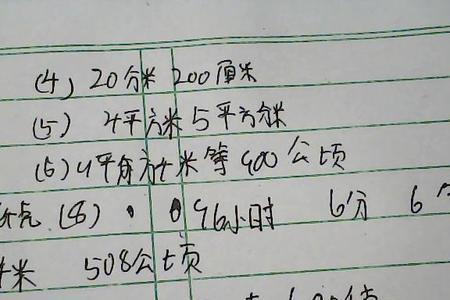 (4) 20分米 200厘米
(5) 4平方米 5平方分米
(6) 4平方千米等400公顷
(8) 96小时 6分 6
米 508公顷